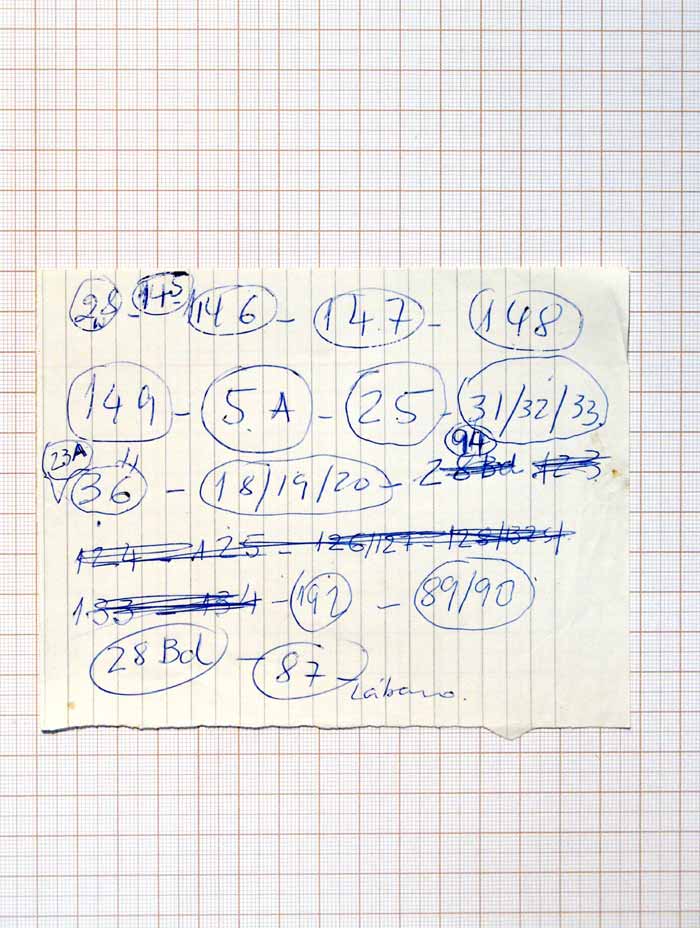 28 - 145 - 146 - 147 - 148
149 - 5.A - 25 - 31/32/33
94
23A 36 - 18/19/20 - 28 Bd 123
124 - 125 - 126/127 - 128/
133 - 134 - 192 - 89/90
28 Bd - 87 -